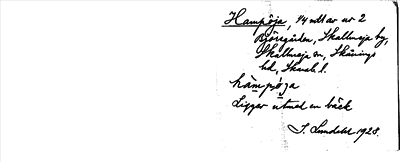 Hampöja, 14 utl av nr 2
Björsgården, Skallmeja by,
Skallmeja sn, Skånings
hd, Skarab. l.
hàmpö́ja
Ligger utmed en bäck
J. Lundahl 1928.